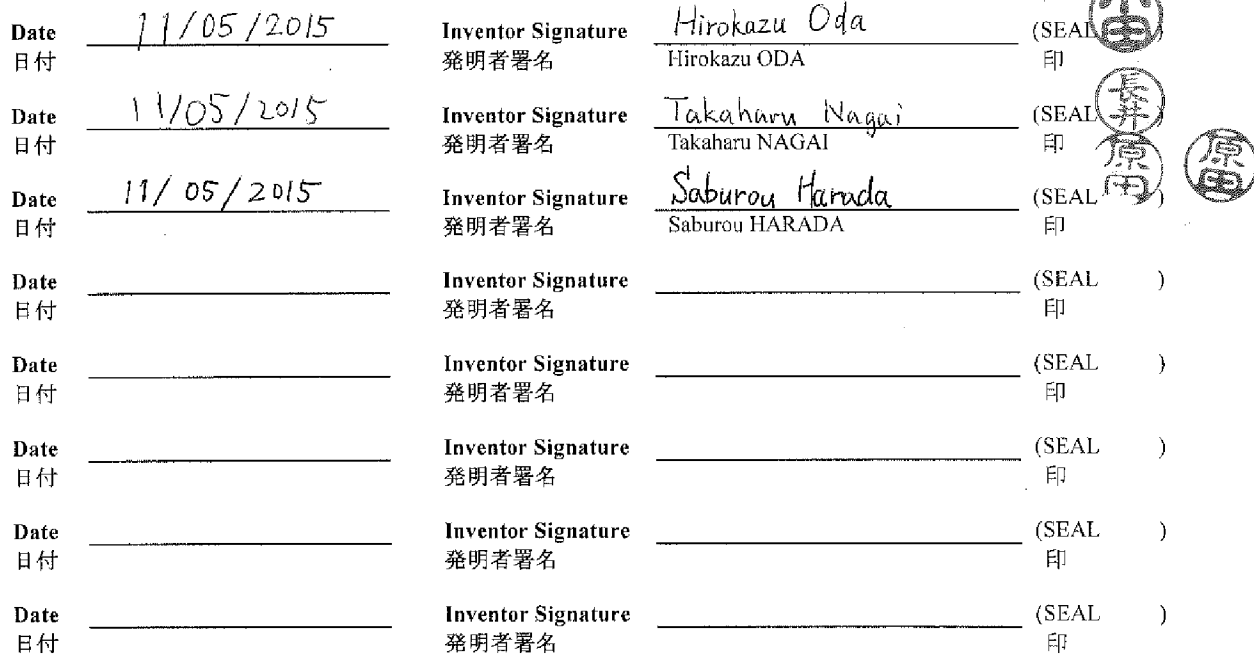 Date 11/05/2015 Inventor Signature Hirokazu Oda (SEAL 小田 )
日付 発明者署名 Hirokazu ODA 印
Date 11/05/2015 Inventor Signature Takaharu Nagai (SEAL 長井
日付 発明者署名 Takaharu NAGAI 印
Date 11/05/2015 Inventor Signature Saburou Harada (SEAL 原田 ) 原田
日付 発明者署名 Saburou HARADA 印
Date Inventor Signature (SEAL )
日付 発明者署名 印
Date Inventor Signature (SEAL )
日付 発明者署名 印
Date Inventor Signature (SEAL )
日付 発明者署名 印
Date Inventor Signature (SEAL )
日付 発明者署名 印
Date Inventor Signature (SEAL )
日付 発明者署名 印